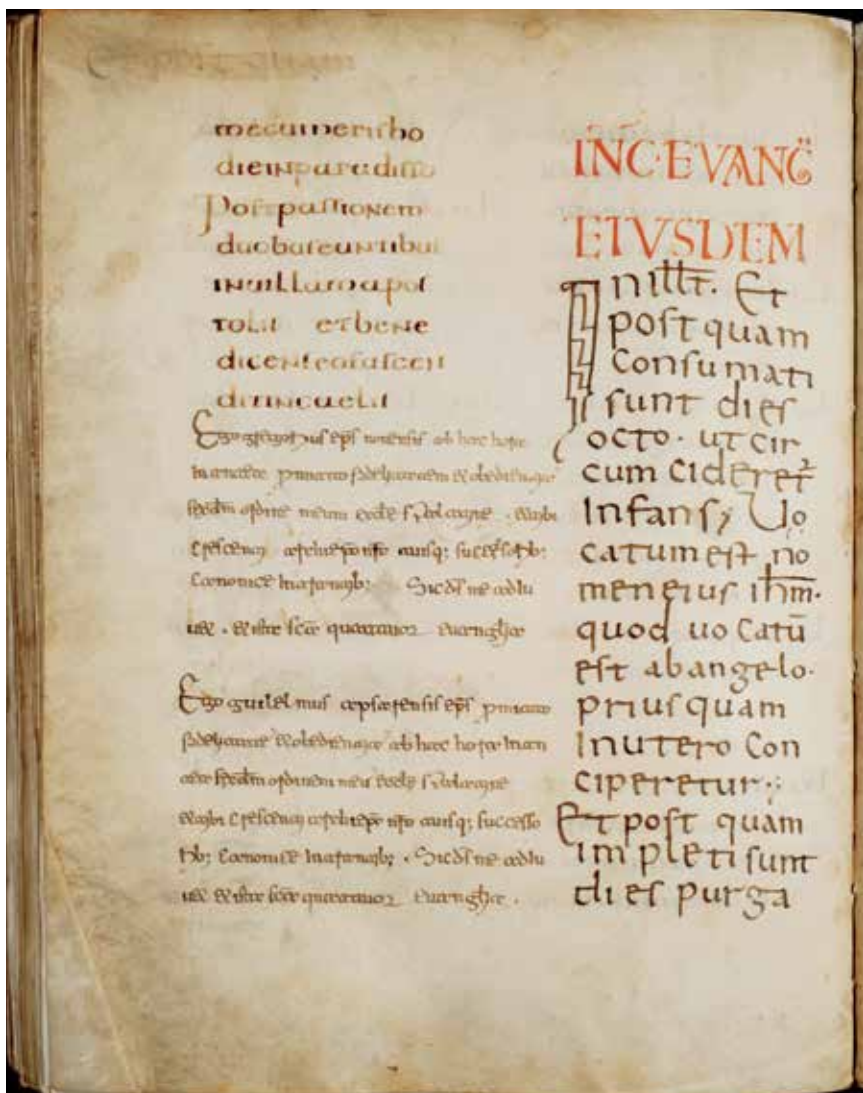 mecum eris ho
die in paradisso
Post passionem
duobus euntibus
in uillam apos
tolis et bene
dicens eos ascen
dit in cuelis
Ego gregorius eps nonensis ab hac hora
in antea promitto fidelitatem & obedientiam
ordine meum eccle & tibi
Crescenti nro tuisq; successorib;
Canonice intrantib; Sic ds me adiu
uet & iste sce quattuor euanglia
Ego guilelmus apsarensis eps promitto
fidelitate & obedientia ab hac hora in an
tea ordinem meu eccle
& tibi Crescenti nro tuisq; successo
rib; Canonice intrantib; Sic ds me adiu
uet & iste sce quattuor euanglia
INC̅·EVANG̅
EIVSDEM
In illt̅. Et
post quam
Consumati
sunt dies
octo · ut cir
cum cideret᷑
Infans; Uo
catum est no
men eius ihm̅.
quod uo Catū
est ab angelo.
priusquam
In utero Con
ciperetur;
Et post quam
im pleti sunt
dies purga